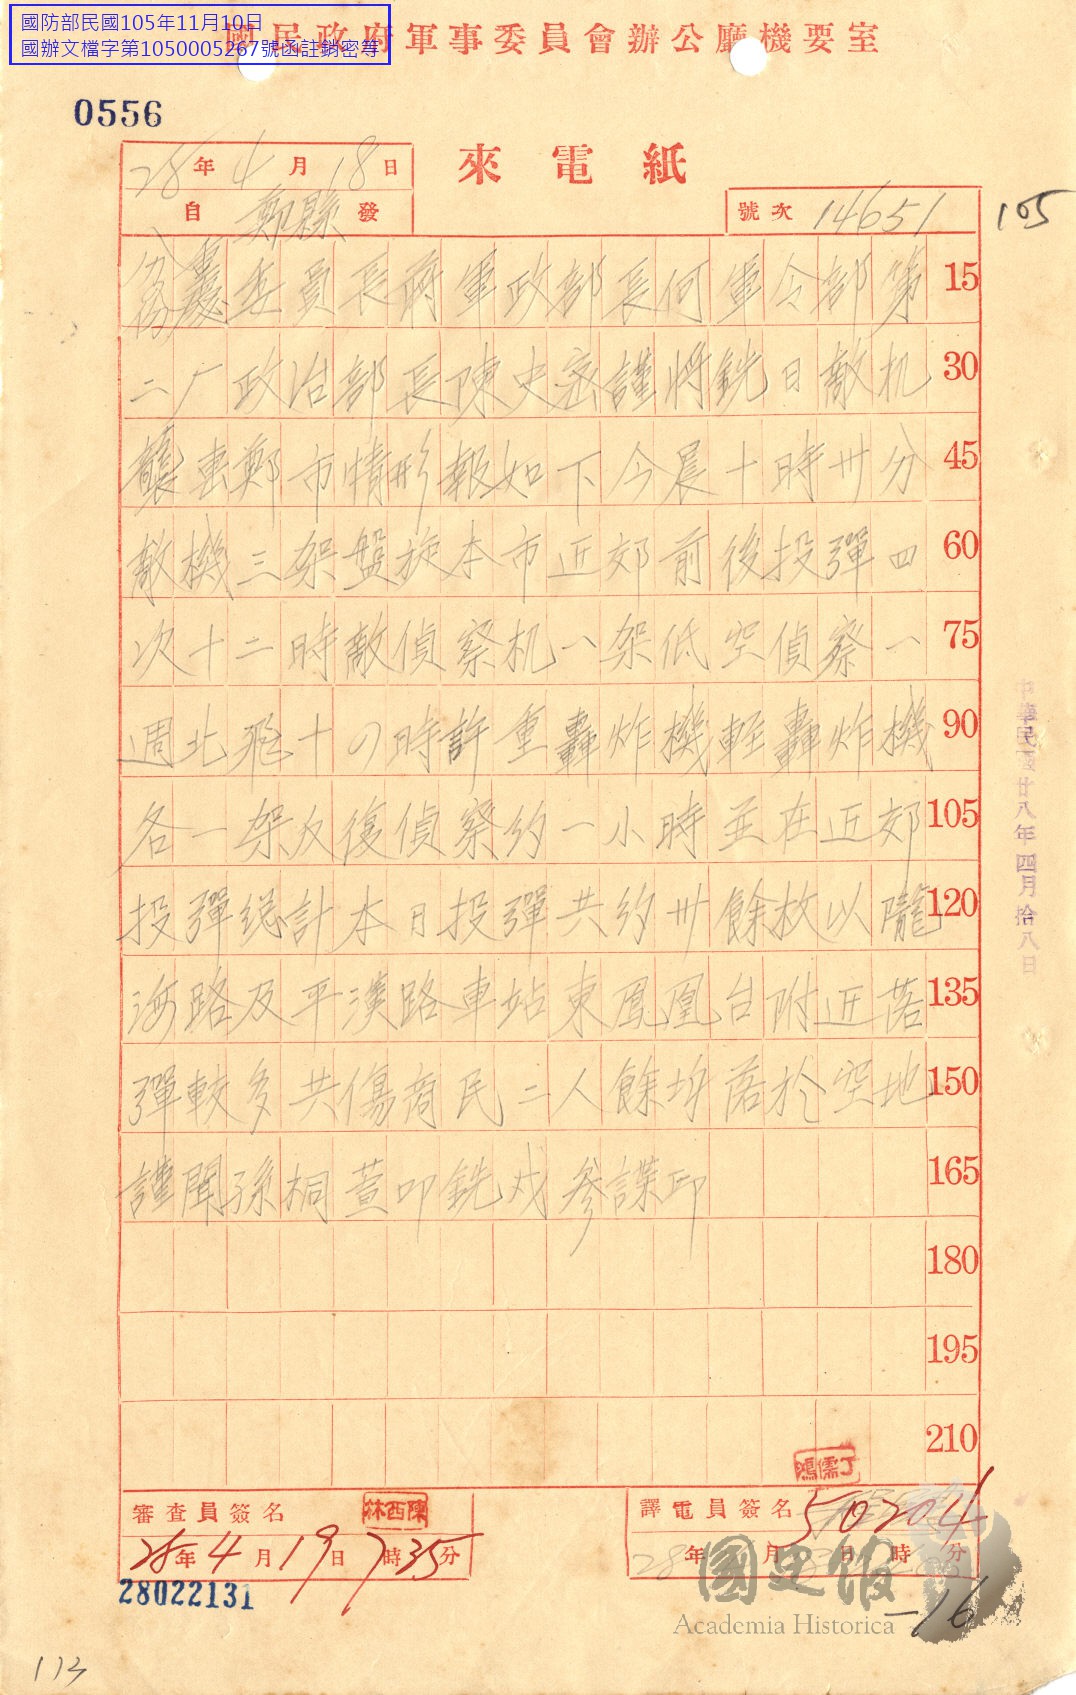 國防部民國105年11月10日
國辦文檔字第1050005267號函註銷密等
國民政府軍事委員會辦公廳機要室
0556
28年4月18日
來電紙
自鄭縣發
號次 14651
105
委員長蔣軍政部長何軍令部第 15
二厂政治部長陳史密謹將銑日敵机 30
襲鄭市情形報如下今晨十時卅分 45
敵機三架盤旋本市近郊前後投彈四 60
次十二時敵偵察机一架低空偵察一 75
週北飛十四時許重轟炸機輕轟炸機 90
各一架反復偵察約一小時並在近郊 105
投彈總計本日投彈共約卅餘枚以隴 120
海路及平漢路車站東鳳凰台附近落 135
彈較多共傷商民二人餘均落於空地 150
謹聞孫桐萱叩銑戌參諜印 165
180
195
210
中華民國廿八年四月拾八日
丁儒鴻
審查員簽名 陳西林
28年4月19日7時35分
譯電員簽名 50204
28年 月 日 時 分
28022131
國史館
Academia Historica
-16
113